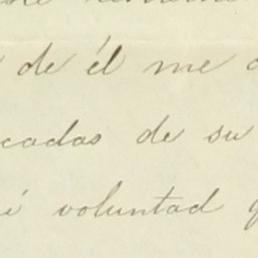 de él me
cadas de su
voluntad